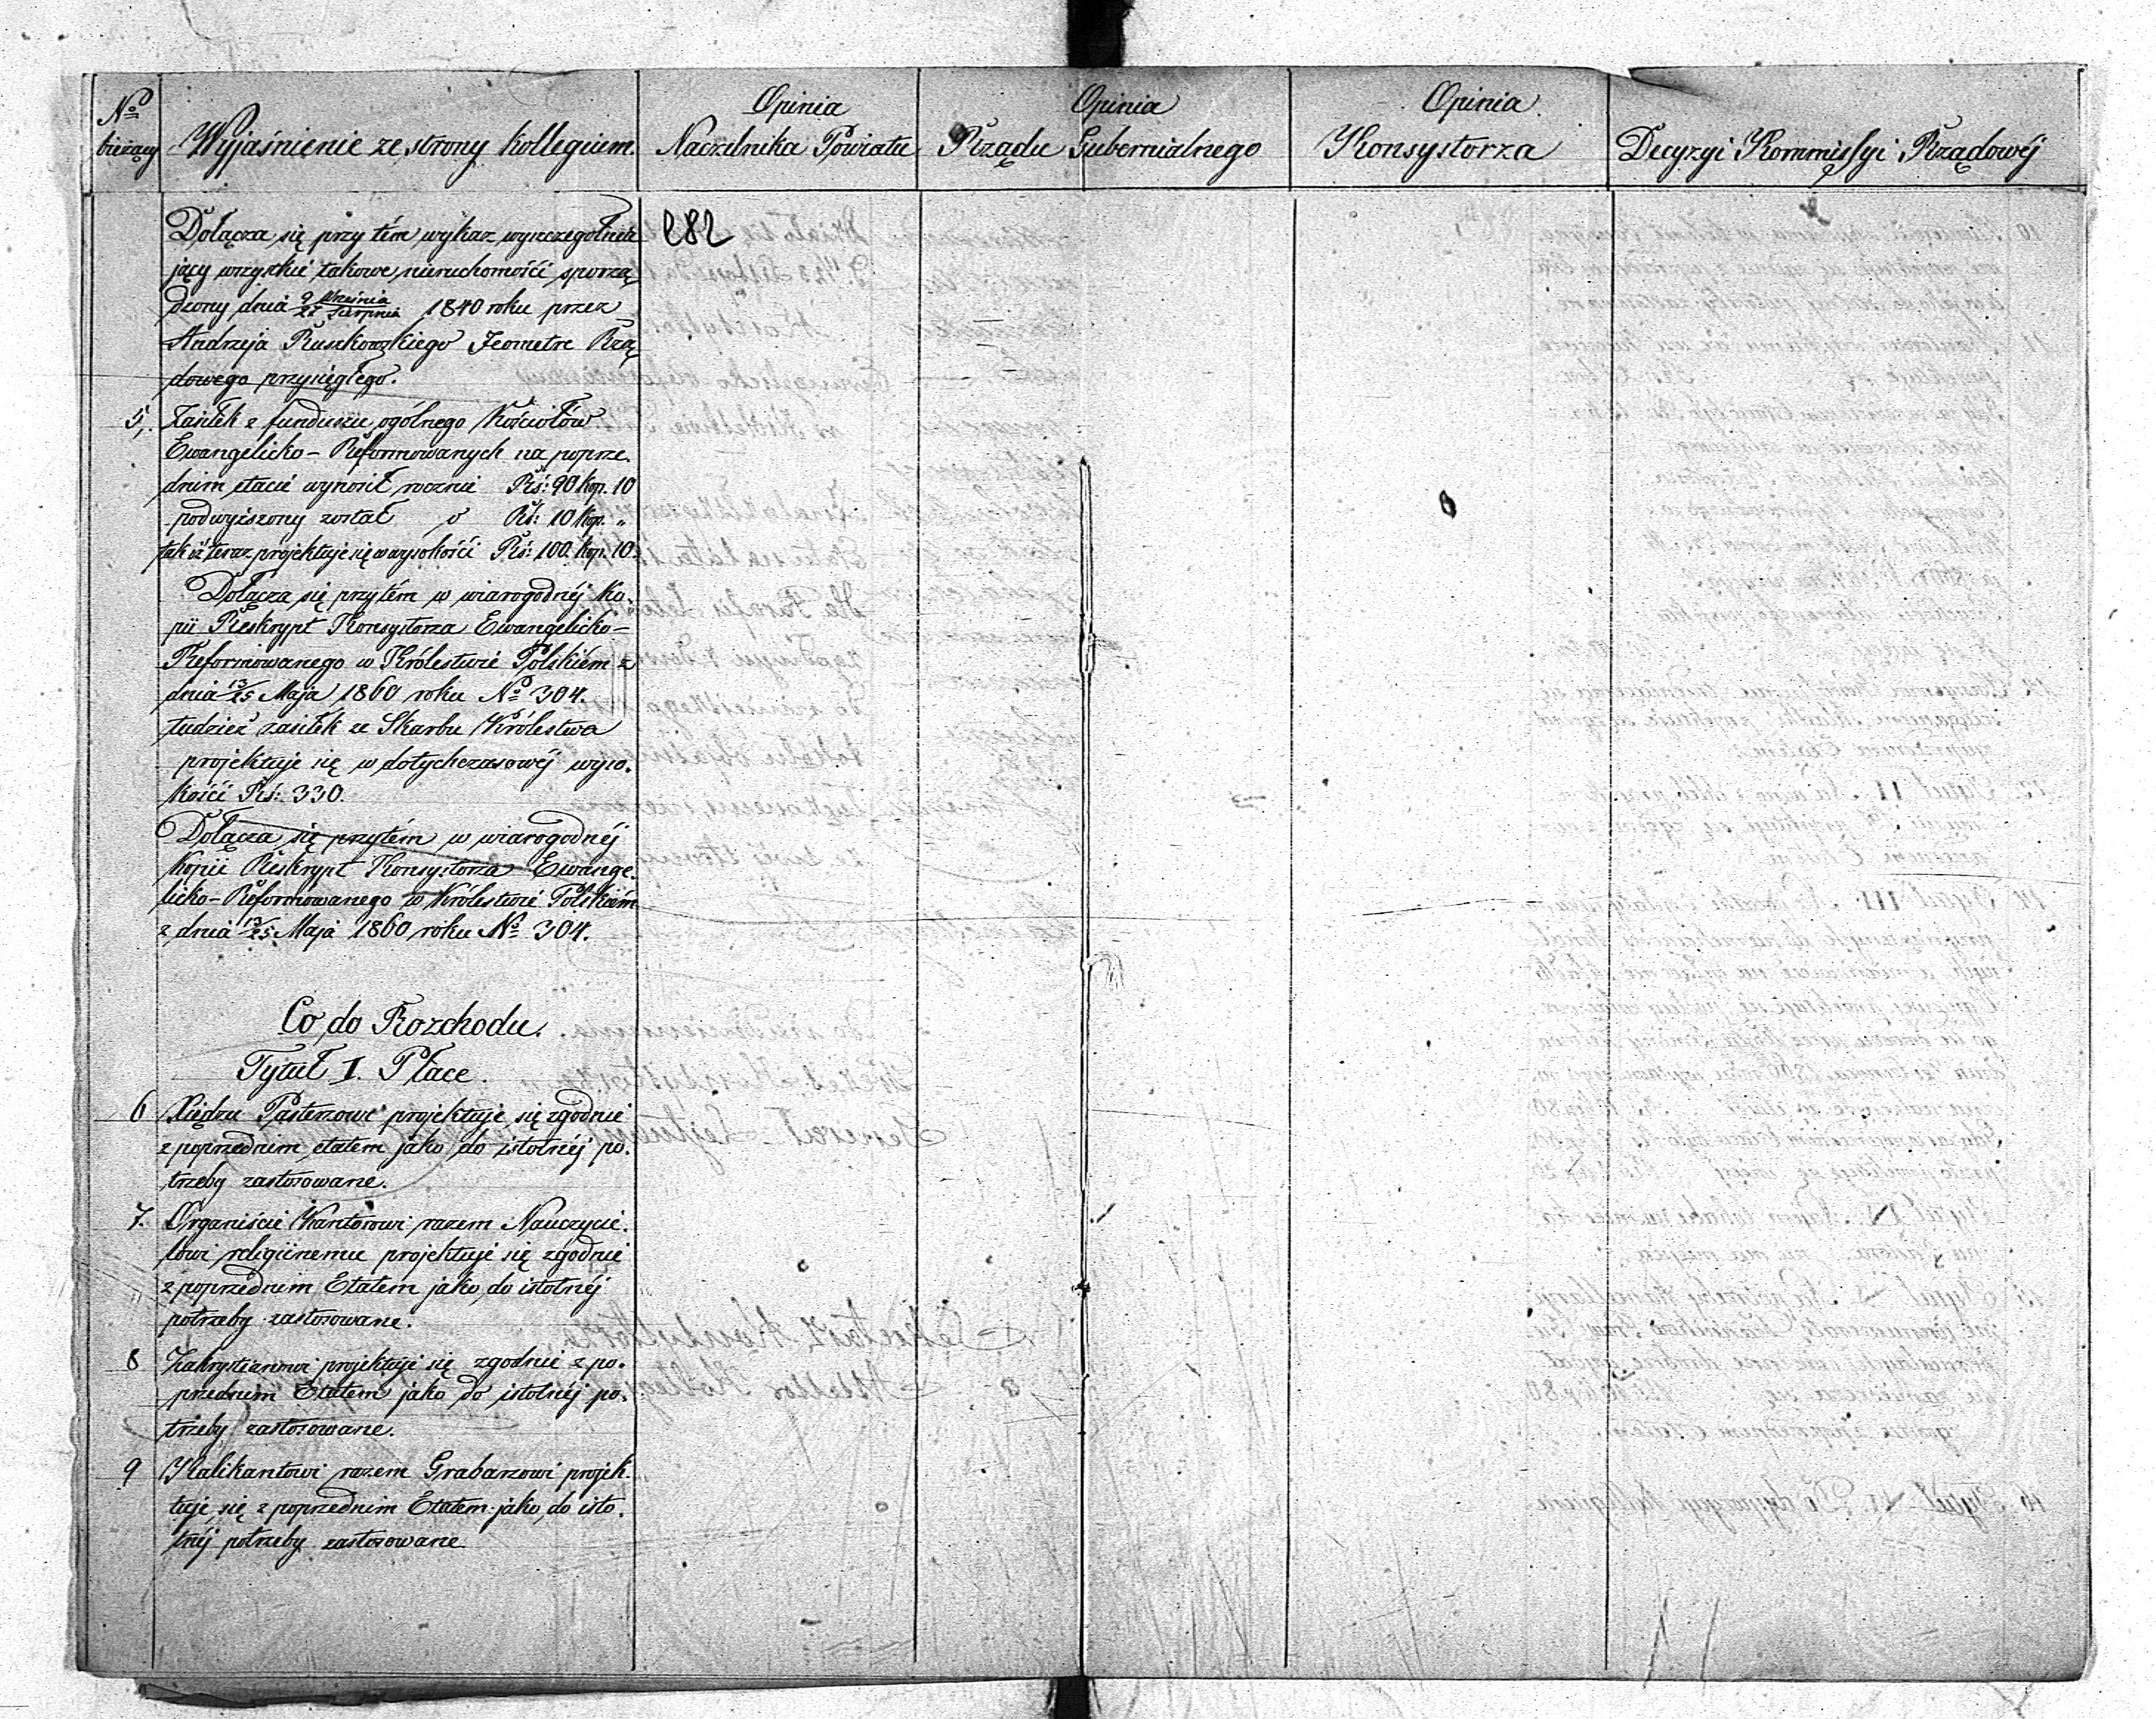 No bieżący
Wyjaśnienie ze strony Kollegium.
Opinia
Naczelnika Powiatu
Opinia
Rządu Gubernialnego
Opinia
Konsystorza
Decyzyi Kommissyi Rządowéj
282
Dołącza się przy tém wykaz wyszczegolnia
jący wszystkie takowe nieruchomości sporzą
dzony dnia 9 Września/27 Sierpnia 1840 roku przez
Andrzeja Ruszkowskiego Jeometrę Rzą
dowego przysięgłego.
5, Zasiłek z funduszu ogólnego Kościołów
Ewangelicko-Reformowanych na poprze.
dnim etacie wynosił rocznie Rs: 90 Kop. 10
podwyższony został o Rs: 10 Kop. "
tak iż teraz projektuje się w wysokości Rs: 100. Kop. 10.
Dołącza się przytém w wiarogodnéj Ko.
pii Reskrypt Konsystorza Ewangelicko-
Reformowanego w Królestwie Polskiém z
dnia 13/25 Maja 1860 roku No 304.
tudzież zasiłek ze Skarbu Królestwa
projektuje się w dotychczasowéj wyso.
kości Rs: 330.
Dołącza się przytém w wiarogodnéj
Kopii Reskrypt Konsystorza Ewange.
licko-Reformowanego w Królestwie Polskiém
z dnia 13/25 Maja 1860 roku No 304.
Co do Rozchodu.
Tytuł I. Płace.
6 Xiędzu Pasterzowi projektuje się zgodnie
z poprzednim etatem jako do istotnéj po.
trzeby zastosowane.
7. Organiście Kantorowi razem Nauczycie.
lowi religiinemu projektuje się zgodnie
z poprzednim Etatem jako do istotnéj
potrzeby zastosowane.
8 Zakrystianowi projektuje się zgodnie z po.
przednim Etatem jako do istotnéj po.
trzeby zastosowane.
9 Kalikantowi razem Grabarzowi projek.
tuje się z poprzednim Etatem jako do isto.
tnéj potrzeby zastosowane